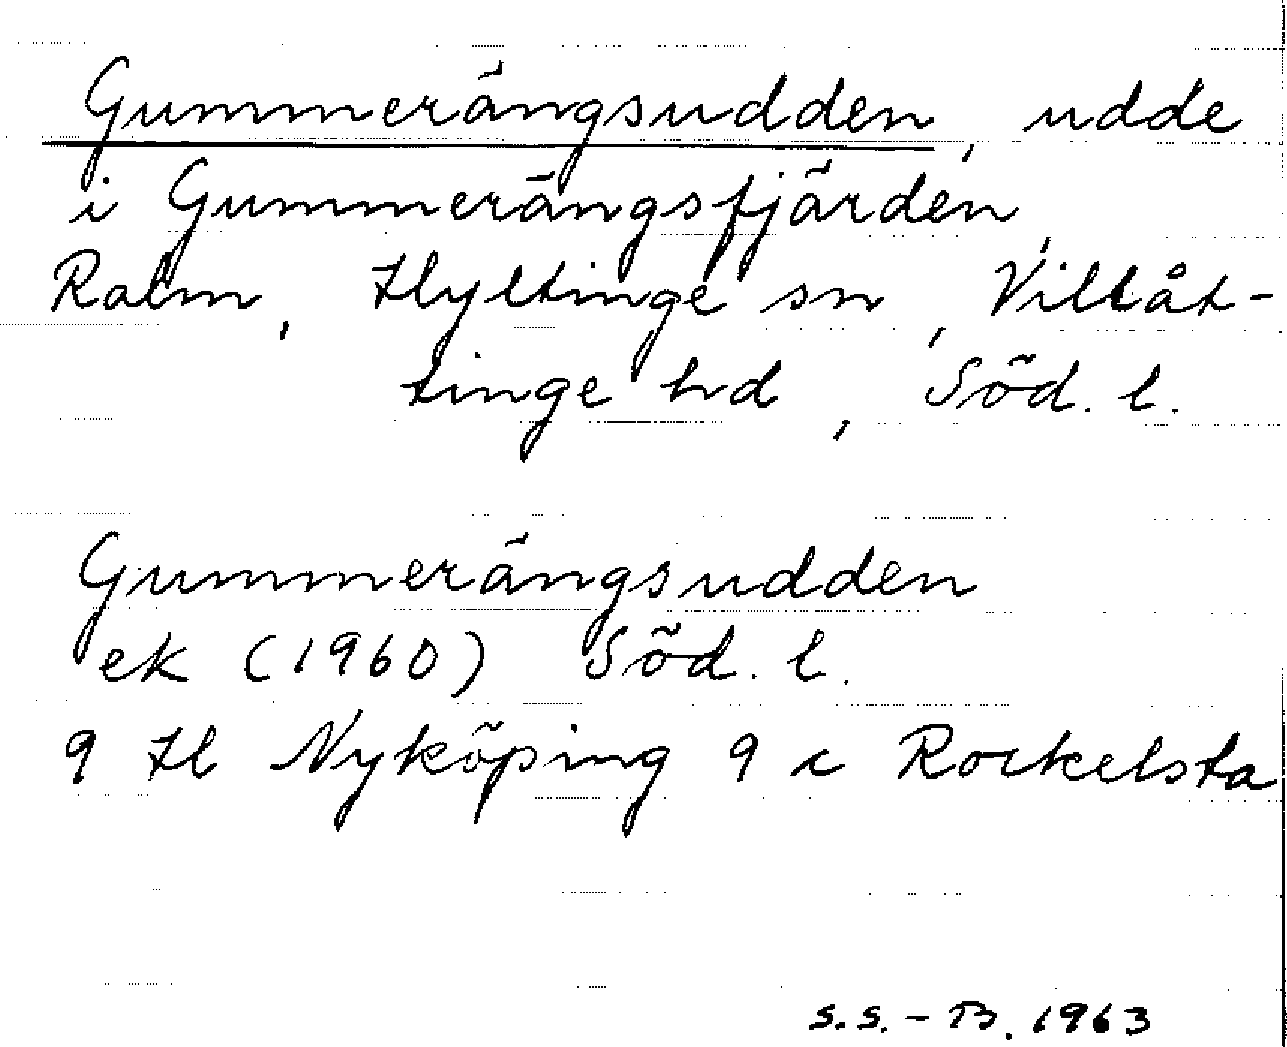 Gummerängsudden, udde
i Gummerängsfjärden,
Ralm, Hyltinge sn, Villåt-
tinge hd, Söd. l.
Gummerängsudden
ek (1960) Söd. l.
9 H Nyköping 9 c Rockelsta
S.S.-B. 1963